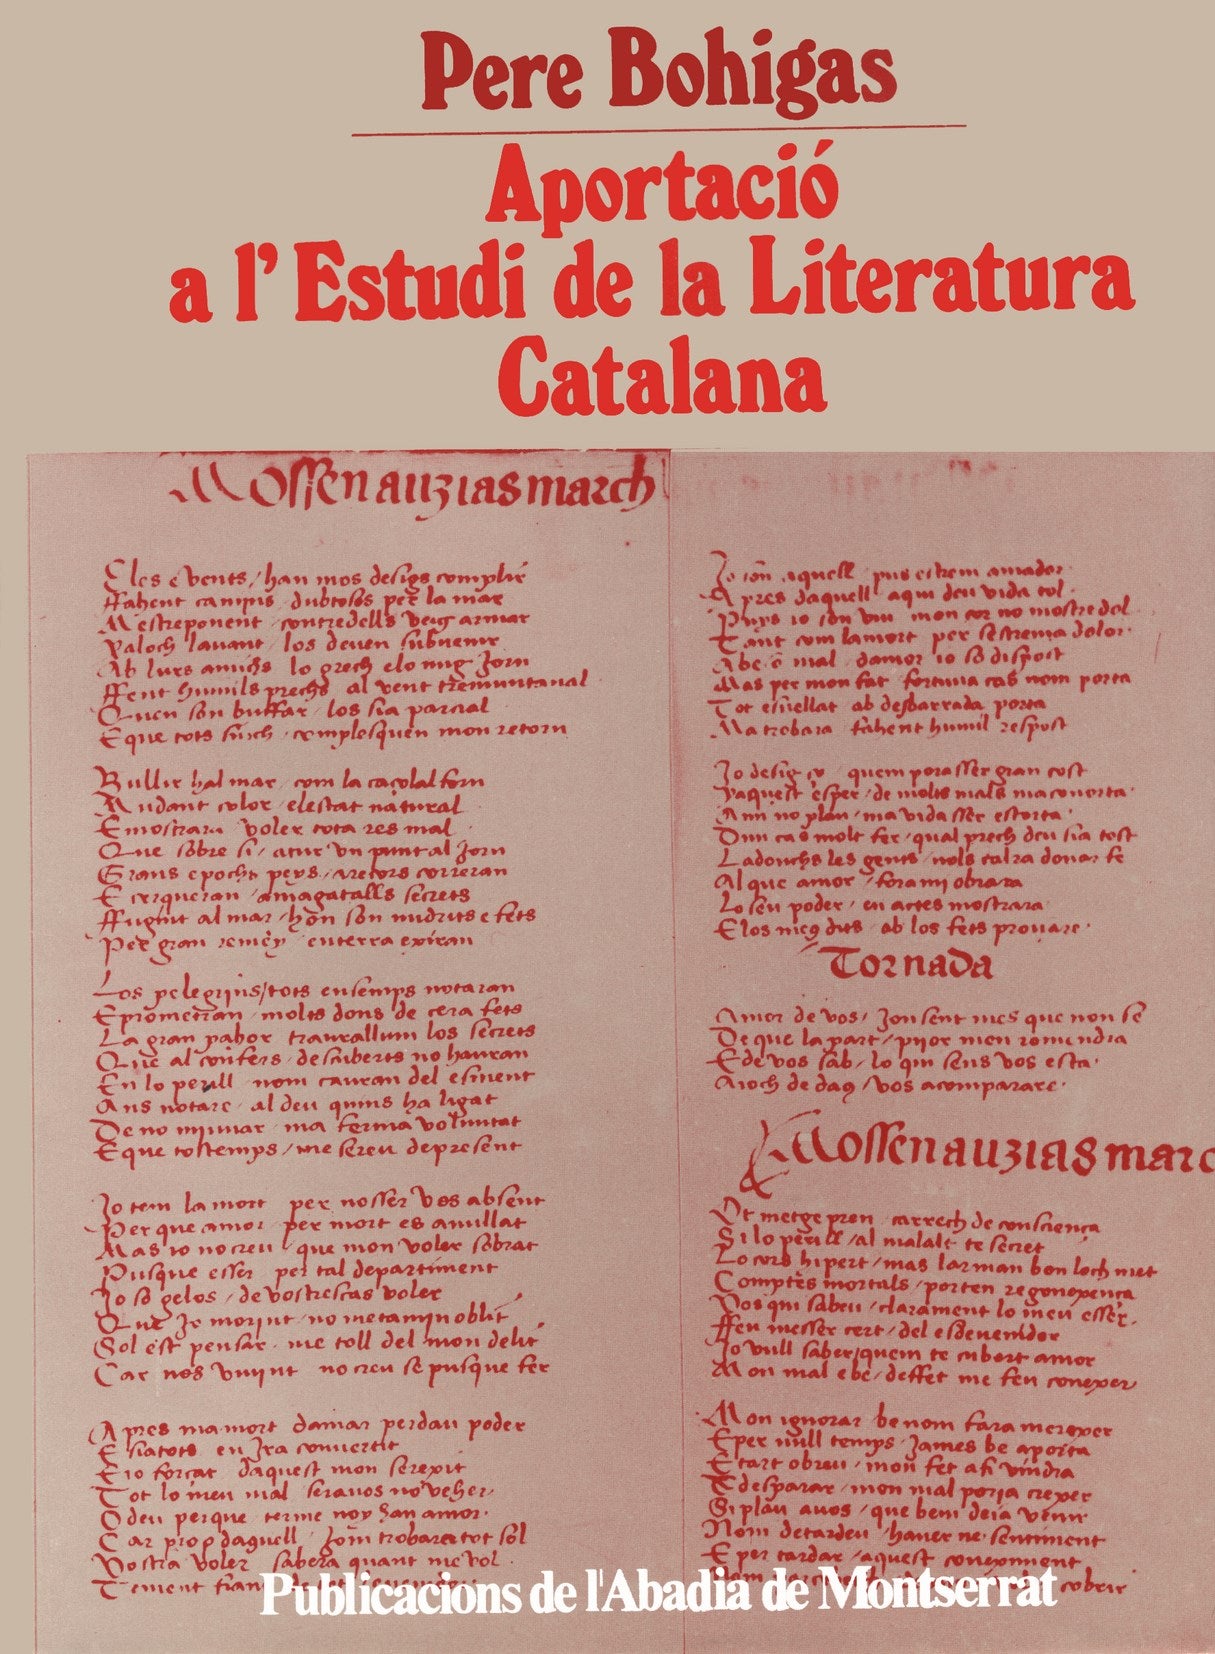 Pere Bohigas
Aportació
a l'Estudi de la Literatura
Catalana
Mossen auzias march
Eles e vents / han mos desigs complir
ffahent camins dubtosos per la mar
Mestre ponent contre dells veig armar
Xaloch lauant los deuen subuenir
Ab lurs amichs lo grech elo mig Jorn
ffent humils prechs al vent tremuntanal
Quen son buffar los sia parcial
E que tots sinch complesquen mon retorn
Bullir hal mar com la caçolal forn
Mudant color elestat natural
E mostrara voler tota res mal
Que sobre si atur vn punt al Jorn
Grans e pochs peys arecors correran
E cerqueran amagatalls secrets
ffugint al mar hon son nudrits e fets
Per gran remey enterra exiran
Los pelegrins / tots ensemps votaran
E prometran molts dons de cera fets
La gran pahor traurallum los secrets
Que al confers descuberts no hauran
En lo perill nom cauran del esment
Ans votare al deu quins ha ligat
De no minuar ma ferma voluntat
E que tostemps me sereu de present
Jo tem la mort per nosser vos absent
Per que amor per mort es anullat
Mas io no creu que mon voler sobrat
Pusque esser per tal departiment
Jo so gelos de vostr escas voler
Que Jo morint no meta min oblit
Sol est pensar me toll del mon delit
Car nos viuint no creu se pusque fer
Apres ma mort damar perdau poder
E sia tots en Jra conuertit
E io forçat daquest mon ser exit
Tot lo meu mal sera vos no veher
O deu perque terme noy ha n amor
Car prop daquell Jom trobara tot sol
Vostra voler sabera quant me vol
Jo son aquell pus estrem amador
Apres daquell aqui deu vida tol
Puys io son viu mon cor no mostre dol
Tant com la mort per sa strema dolor
A be o mal damor io so dispost
Mas per mon fat fortuna cas nom porta
Tot esuellat ab desbarrada porta
Ma trobara fahent humil respost
Jo desig ço quem pora sser gran cost
Yaquest esper de molts mals maconorta
A mi no plau ma vida sser estorta
Dun cas molt fer qual prech deu sia tost
Ladonchs les gents nols calra donar fe
Al que amor fora mi obrara
Lo seu poder en actes mostrara
E los meus dits ab los fets prouare
Tornada
Amor de vos Jon sent mes que non se
De que la part pijor men romandra
E de vos sab lo qui sens vos esta
A joch de daus vos acomparare
Mossen auzias marc
Si lo perill al malalt te secret
Lo cors hi pert mas larma n bon loch met
Comptes mortals porten regonexença
Vos qui sabeu clarament lo meu esser
ffeu messer cert del esdeuenidor
Jo vull saber quem te cubert amor
Mon mal e be deffet me feu conexer
Mon ignorar be nom fara merexer
E per null temps James be aporta
E tart obreu mon fet a fi vindra
E desparar mon mal poria crexer
Si plau a vos que bem deia venir
Nom detardeu hauer ne sentiment
E per tardar aquest coneximent
Publicacions de l'Abadia de Montserrat